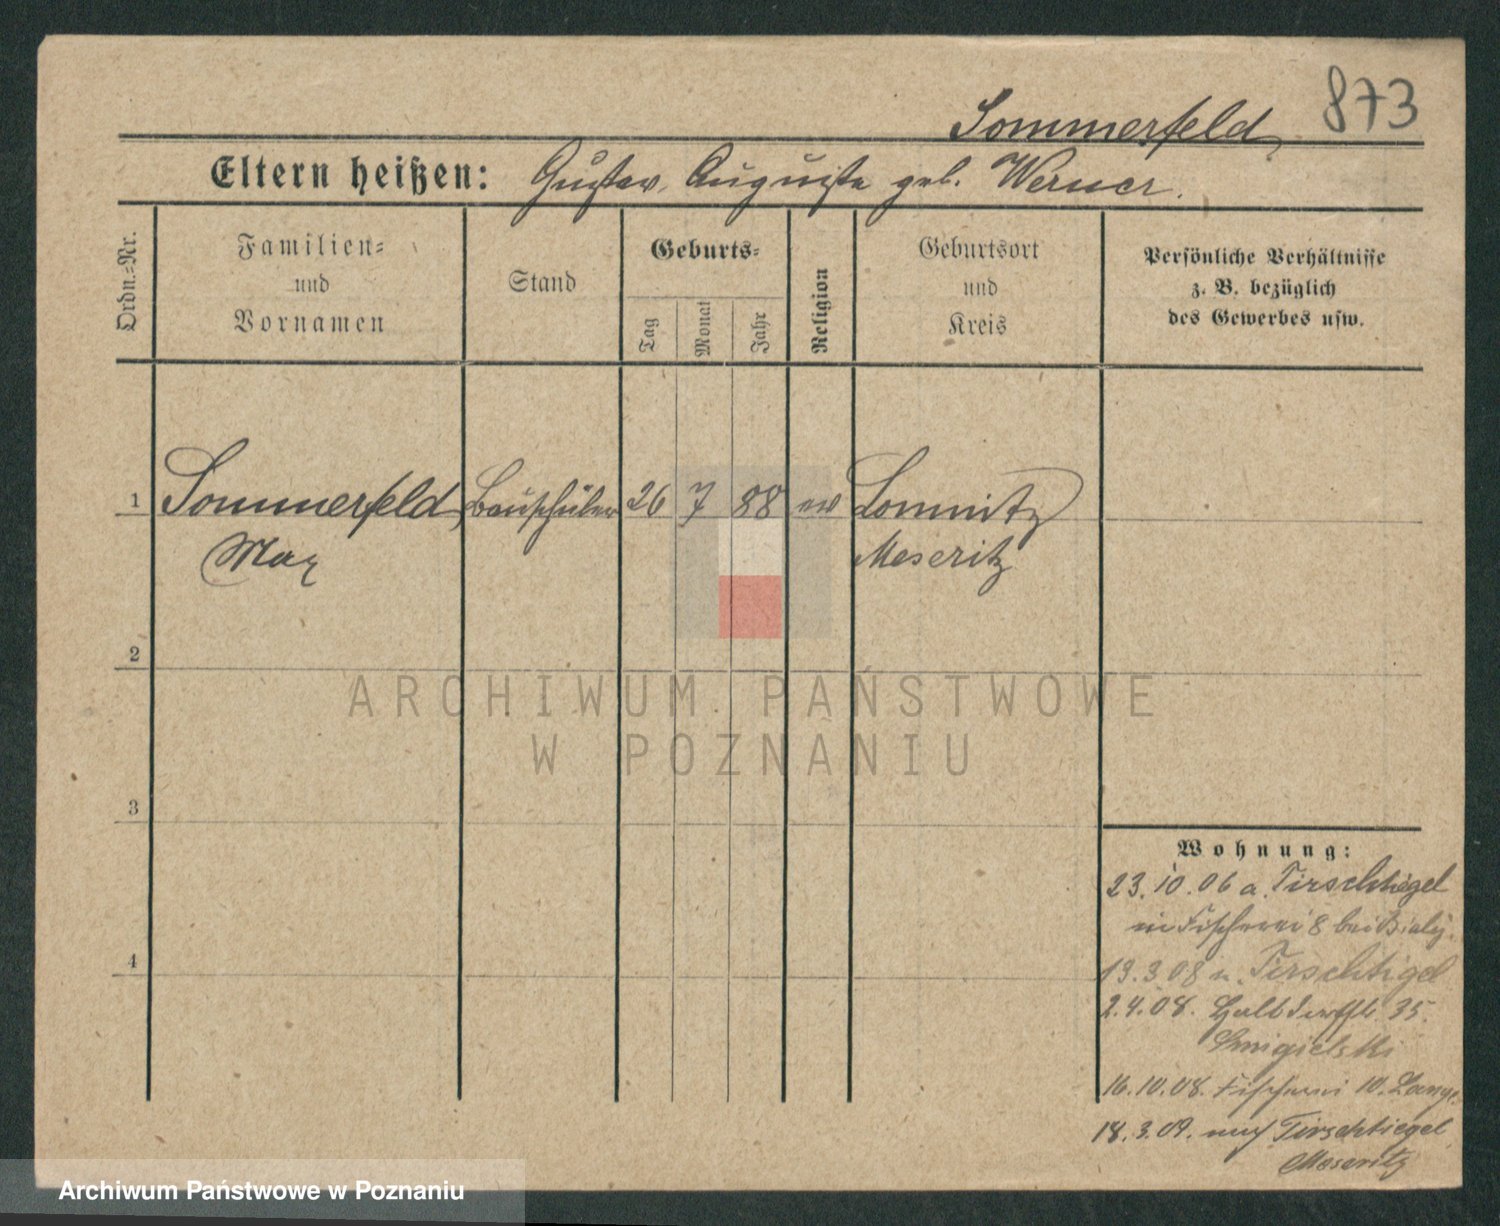 873
Sommerfeld
Eltern heißen: Gustav, Auguste geb. Werner.
Ordn.=Nr.
Familien=
und
Vornamen
Stand
Geburts=
Tag
Monat
Jahr
Religion
Geburtsort
und
Kreis
Persönliche Verhältnisse
z. B. bezüglich
des Gewerbes usw.
1 Sommerfeld, Bauschüler 26 7 88 ev Lomnitz
Max Meseritz
2
3
4
Wohnung:
23.10.06 a. Tirschtiegel
in Fischerei 8 bei
19.3.08 n. Tirschtigel
2.4.08. Halbdorfstr 35.
Smigielski
16.10.08. Fischerei 10. Lange
18.3.09. nach Tirschtiegel
Meseritz
ARCHIWUM PAŃSTWOWE
W POZNANIU
Archiwum Państwowe w Poznaniu